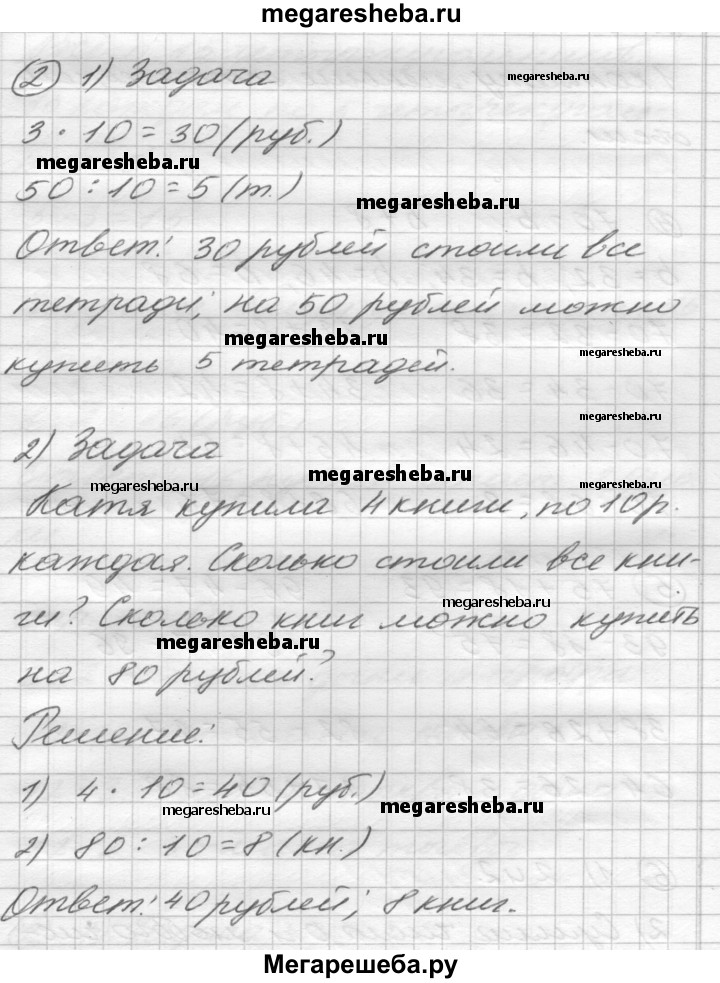 megaresheba.ru
② 1) Задача
megaresheba.ru
3 · 10 = 30 (руб.)
megaresheba.ru
50 : 10 = 5 (т.)
megaresheba.ru
Ответ: 30 рублей стоили все
тетради; на 50 рублей можно
megaresheba.ru
megaresheba.ru
купить 5 тетрадей.
megaresheba.ru
2) Задача
megaresheba.ru
megaresheba.ru
megaresheba.ru
Катя купила 4 книги, по 10 р.
каждая. Сколько стоили все кни-
megaresheba.ru
ги? Сколько книг можно купить
megaresheba.ru
на 80 рублей?
Решение:
1) 4 · 10 = 40 (руб.)
megaresheba.ru
megaresheba.ru
2) 80 : 10 = 8 (кн.)
Ответ: 40 рублей; 8 книг.
Мегарешеба.ру